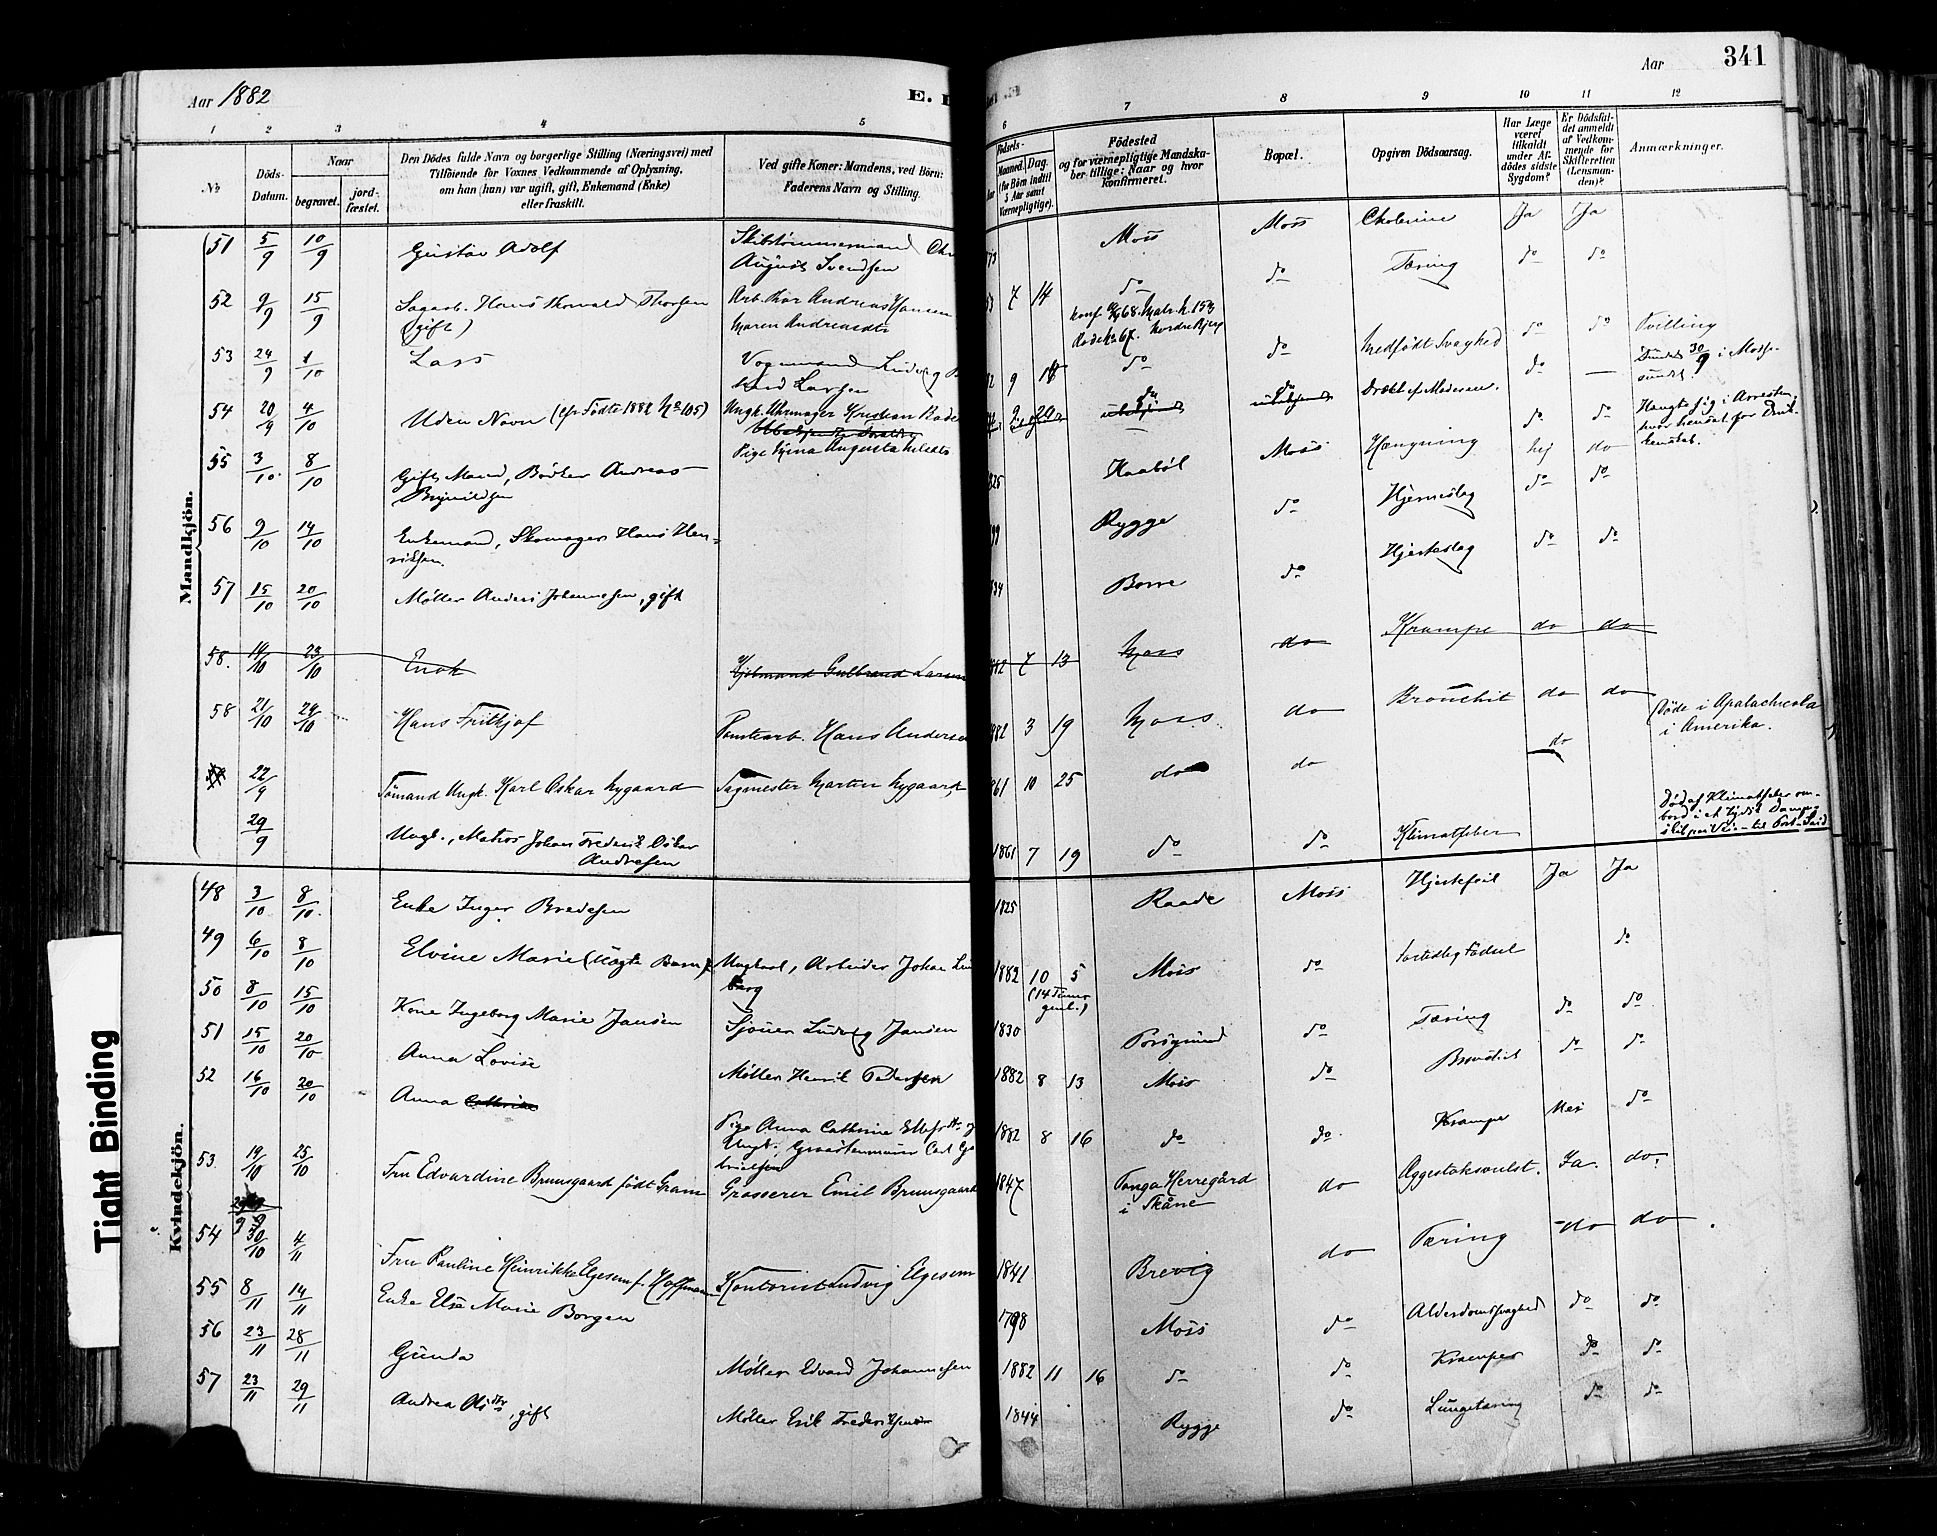 Aar 1882
E. D
341
Aar
1 2 3 4 5
6 7 8 9 10 11 12
No
Döds-
Datum.
Naar
begravet.
jord-
fæstet.
Den Dödes fulde Navn og borgerlige Stilling (Næringsvei) med
Tilföiende for Voxnes Vedkommende af Oplysning,
om han (hun) var ugift, gift, Enkemand (Enke)
eller fraskilt.
Ved gifte Koner: Mandens, ved Börn:
Faderens Navn og Stilling.
Födsels-
Maaned.
Dag.
(for Börn indtil
5 Aar samt
Værnepligtige).
Födested
og for værnepligtige Mandska-
ber tillige: Naar og hvor
konfirmeret.
Bopæl.
Opgiven Dödsaarsag.
Har Læge
været
tilkaldt
under Af-
dödes sidste
Sygdom?
Er Dödsfal-
det anmeldt
af Vedkom-
mende for
Skifteretten
(Lensman-
den)?
Anmærkninger.
Mandkjön.
51 5/9 10/9 Gustav Adolf Skibstømmermand
August Svendsen
Moss Moss Cholerine Ja Ja
52 9/9 15/9 Sagarb. Hans Thorvald Thorsen
(gift)
Arb. Thor Andreas Hansen
Maren Andreasdtr
7 14 do do Tæring do do
53 24/9 1/10 Lars Vognmand Ludvig
Larsen
9 do do Medfødt Svaghed do do Tvilling
54 20/9 4/10 Uden Navn (cfr Fødte 1882 No 105) Ungk. Uhrmager Kristian
Pige Augusta
do do Dræbt af Moderen. do — Fundet 30/9 i Mosse-
sundet.
55 3/10 8/10 Gift Mand, Bødker Andreas
Brynildsen
Kaabøl Moss Hængning Nej do Hængte sig i Arresten,
hvor hensat for Druk-
kenskab.
56 9/10 14/10 Enkemand, Skomager Hans Hen-
riksen.
Rygge do Hjerneslag do do
57 15/10 20/10 Møller Anders Johannesen, gift
Borre do Hjerteslag do do
58. 19/10 23/10 Enok Hjulmand Gulbrand Larsen
7 13 Moss do Krampe do do
58 21/10 24/10 Hans Frithjof Tomtearb. Hans Andersen
3 19 Moss do Bronchit do do
22/9 Sömand Ungk. Karl Oskar Nygaard Sagmester Martin Nygaard
10 25 do do do Døde i Apalachicola
i Amerika.
29/9 Ungk., Matros Johan Frederik Oskar
Andresen
1861 7 19 do do Klimatfeber Død af Klimatfeber om-
bord i et tydsk Damp-
skib til Port-Said
Kvindekjön.
48 3/10 8/10 Enke Inger Bredesen
1825 Raade Moss Hjertefeil Ja Ja
49 6/10 8/10 Elvine Marie (Uægte Barn) Ungkarl, Arbeider Johan
berg
1882 10 5
(14 Timer
gml.)
Moss do Fortidlig Fødsel do
50 8/10 15/10 Kone Ingeborg Marie Jansen Sjøm. Ludvig Jansen
1830 Porsgrund do Tæring do do
51 15/10 20/10 Anna Lovise Møller Henrik Pedersen
1882 8 13 Moss do Bronchit do do
52 16/10 20/10 Anna Cathrine Pige Anna Cathrine
Ungk. Carl
1882 8 16 do do. Krampe Nei do
53 19/10 25/10 Fru Edvardine Brunsgaard født Gram Grosserer Emil Brunsgaard
1847 Tonga Herregård
i Skåne
do Æggestoksvulst. Ja. do.
54 30/10 4/11 Fru Pauline Heinrikke Elgesem f. Hoffmann Kontorist Ludvig Elgesem
1841 Brevig do Tæring do do
55 8/11 14/11 Enke Else Marie Borgen
1798 Moss do Alderdomssvaghed do do
56 23/11 28/11 Gunda Møller Edvard Johannesen
1882 11 16 do do Kramper do do
57 23/11 29/11 Andrea , gift Møller Erik Frederiksen
1844 Rygge do Lungetæring do do
Tight Binding